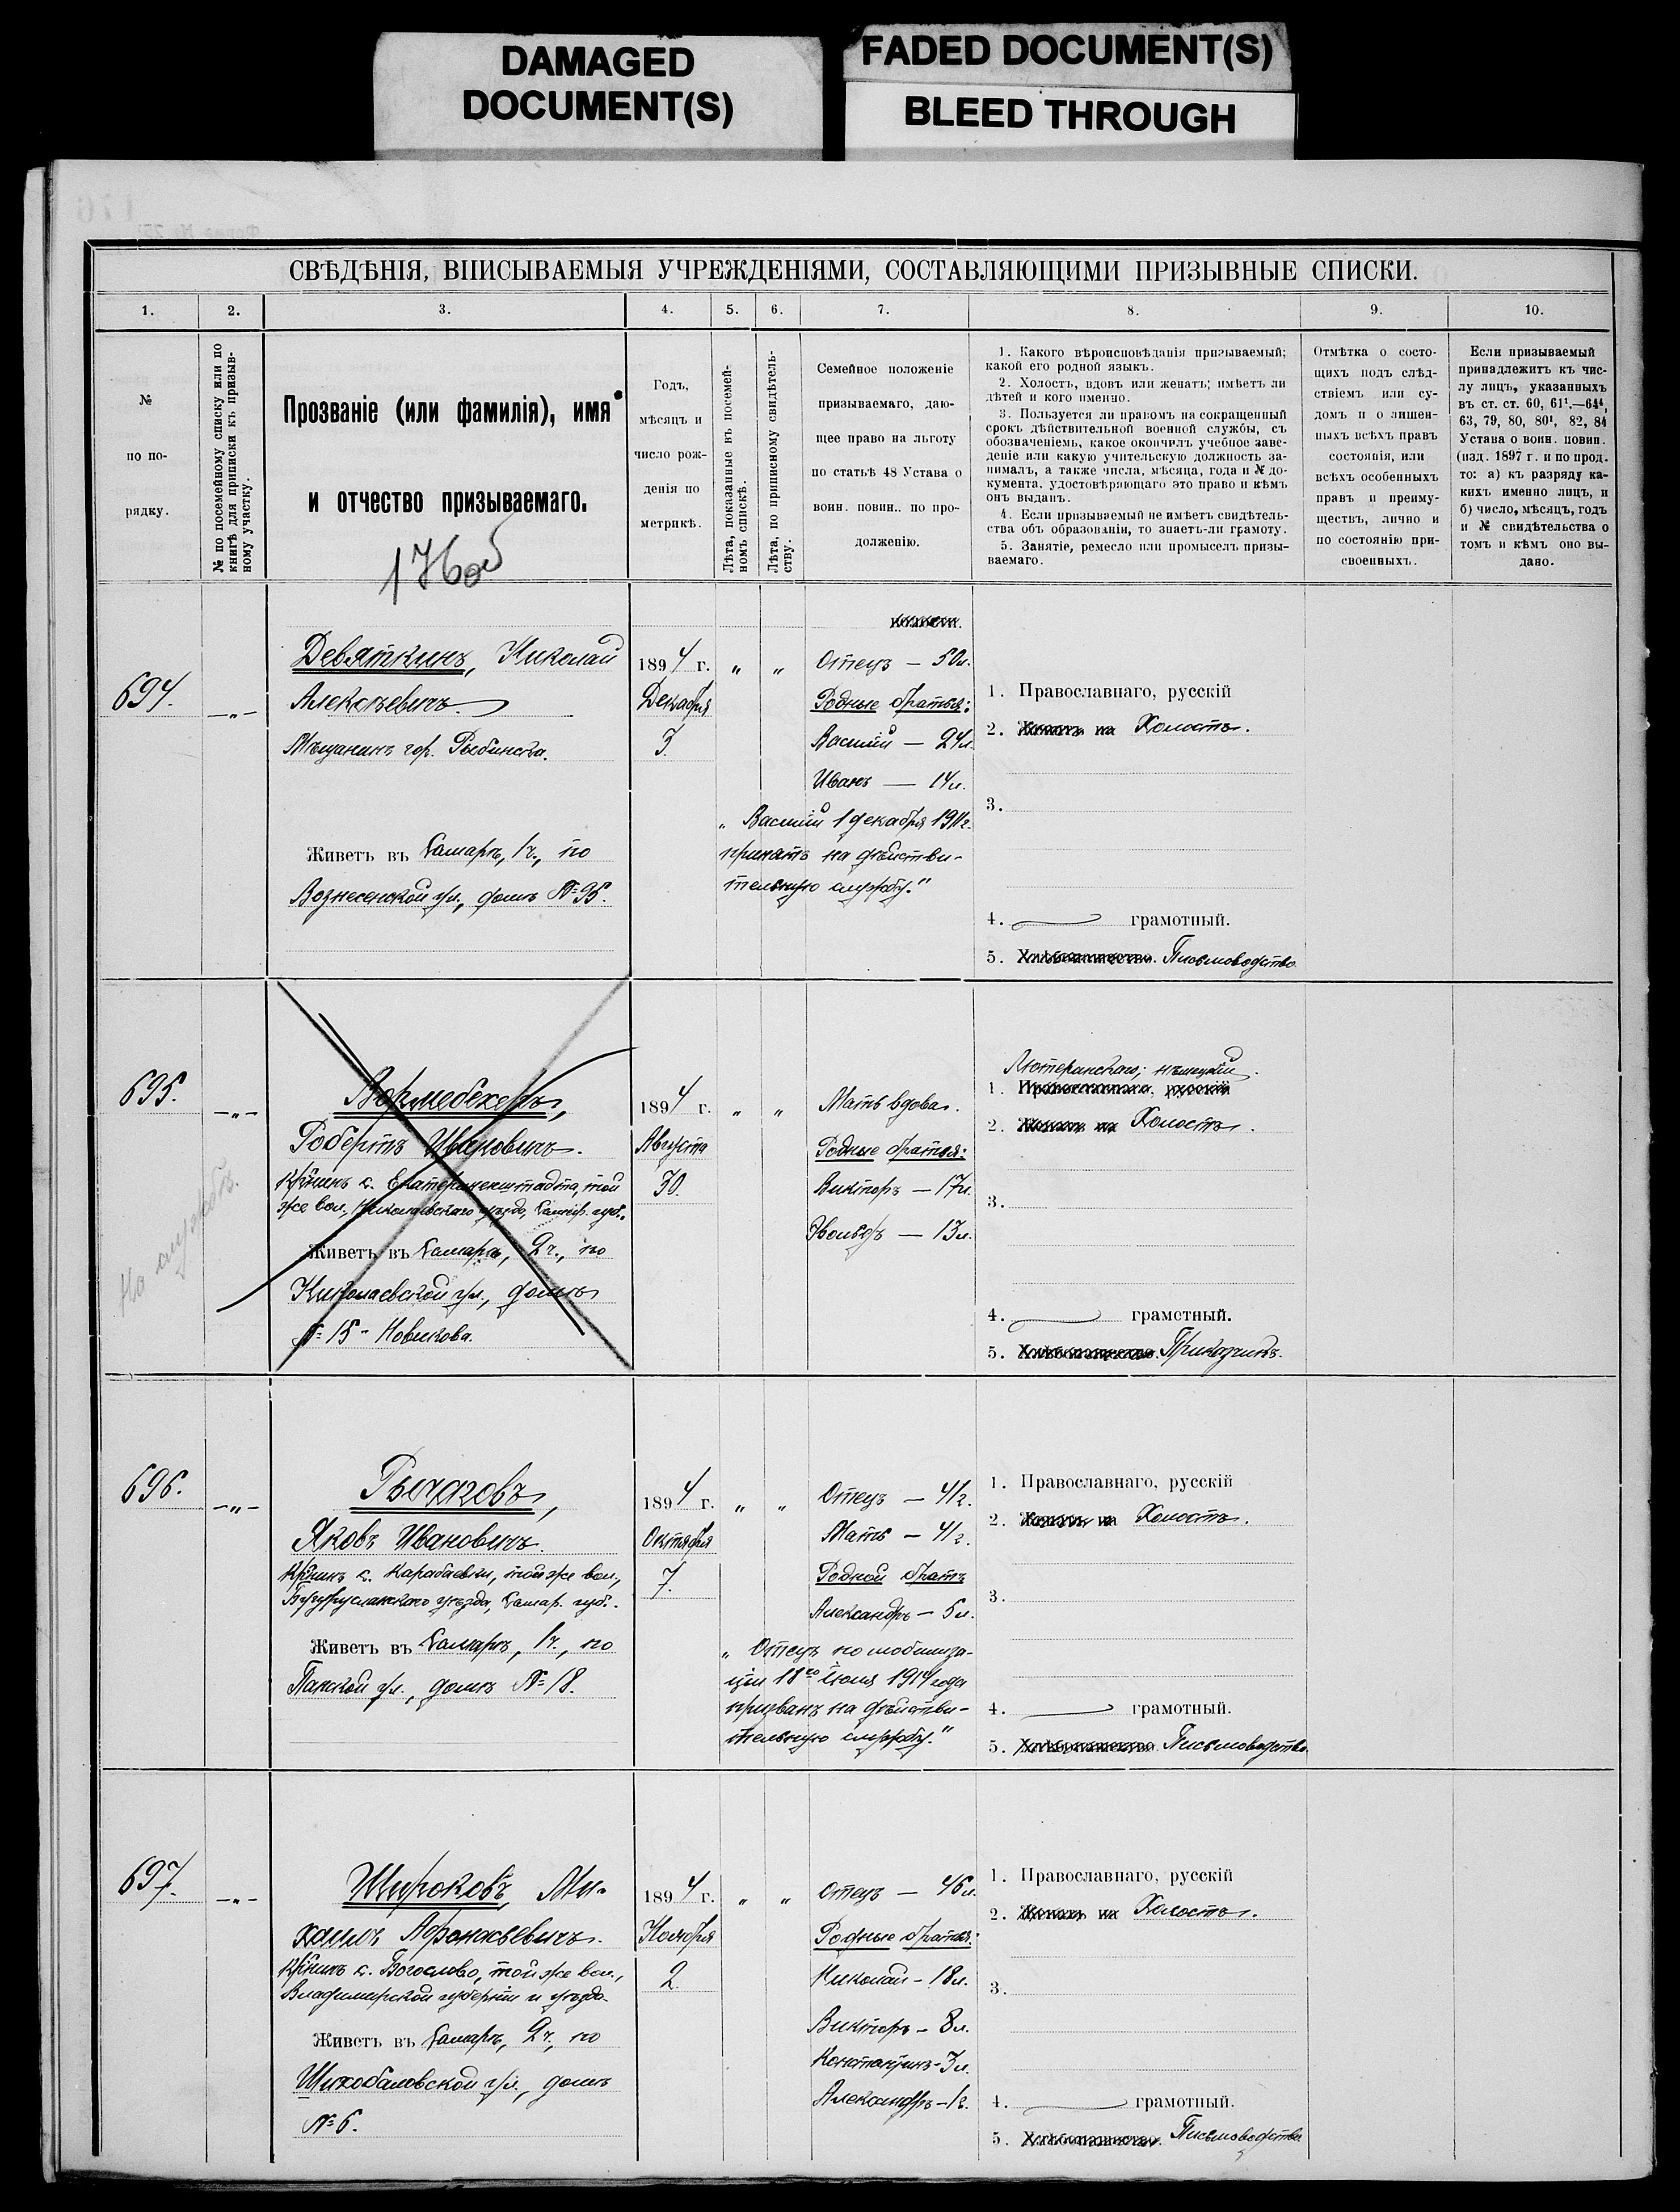 DAMAGED
DOCUMENT(S)
FADED DOCUMENT(S)
BLEED THROUGH
СВѢДѢНІЯ, ВПИСЫВАЕМЫЯ УЧРЕЖДЕНІЯМИ, СОСТАВЛЯЮЩИМИ ПРИЗЫВНЫЕ СПИСКИ.
1. 2. 3. 4. 5. 6. 7. 8. 9. 10.
№
по по-
рядку.
№ по посемейному списку или по
книгѣ для приписки къ призыв-
ному участку.
Прозваніе (или фамилія), имя
и отчество призываемаго.
176об
Годъ,
мѣсяцъ и
число рож-
денія по
метрикѣ.
Лѣта, показанные въ посемей-
номъ спискѣ.
Лѣта, по приписному свидѣтель-
ству.
Семейное положеніе
призываемаго, даю-
щее право на льготу
по статьѣ 48 Устава о
воин. повин.. по про-
долженію.
1. Какого вѣроисповѣданія призываемый;
какой его родной языкъ.
2. Холостъ, вдовъ или женатъ; имѣетъ ли
дѣтей и кого именно.
3. Пользуется ли правомъ на сокращенный
срокъ дѣйствительной военной службы, съ
обозначеніемъ, какое окончилъ учебное заве-
деніе или какую учительскую должность за-
нималъ, а также числа, мѣсяца, года и № до-
кумента, удостовѣряющаго это право и кѣмъ
онъ выданъ.
4. Если призываемый не имѣетъ свидѣтель-
ства объ образованіи, то знаетъ-ли грамоту.
5. Занятіе, ремесло или промыселъ призы-
ваемаго.
Отмѣтка о состо-
щихъ подъ слѣд-
ствіемъ или су-
домъ и о лишен-
ныхъ всѣхъ правъ
состоянія, или
всѣхъ особенныхъ
правъ и преиму-
ществъ, лично и
по состоянію при-
своенныхъ.
Если призываемый
принадлежитъ къ чис-
лу лицъ, указанныхъ
въ ст. ст. 60, 61¹.—64⁴,
63, 79, 80, 80¹, 82, 84
Устава о воин. повин.
(изд. 1897 г. и по прод.
то: а) къ разряду ка-
кихъ именно лицъ, и
б) число, мѣсяцъ, годъ
и № свидѣтельства о
томъ и кѣмъ оно вы-
дано.
694.
—„—
Девяткинъ, Николай
Алексѣевичъ.
Мѣщанинъ гор. Рыбинска.
Живетъ въ Самарѣ, 1ч., по
Вознесенской ул., домъ № 95.
1894 г.
Декабря
3.
„ „
Отецъ — 50л.
Родные братья:
Василій — 24л.
Иванъ — 14л.
„Василій 1 декабря 1911г.
принятъ на дѣйстви-
тельную службу."
1. Православнаго, русскій
2. Женатъ на Холостъ.
3.
4. грамотный.
5. Хлѣбопашество. Письмоводство
695.
—„—
На службѣ.
Вормсбехеръ,
Робертъ Ивановичъ.
Кр-нинъ с. Екатериненштадта, той
же вол., Николаевскаго уѣзда, Самар. губ.
Живетъ въ Самарѣ, 2ч., по
Николаевской ул., домъ
№ 15 - Новикова.
1894 г.
Августа
30.
„ „
Мать вдова.
Родные братья:
Викторъ — 17л.
— 13л.
Лютеранскаго; нѣмецкій.
1. Православнаго, русскій
2. Женатъ на Холостъ.
3.
4. грамотный.
5. Хлѣбопашество. Приказчикъ.
696.
—„—
Рычаговъ,
Яковъ Ивановичъ.
Кр-нинъ с. Карабаевки, той же вол.,
Бугурусланскаго уѣзда, Самар. губ.
Живетъ въ Самарѣ, 1ч., по
Панской ул., домъ № 18.
1894 г.
Октября
7.
„ „
Отецъ — 41г.
Мать — 41г.
Родной братъ
Александръ — 5л.
„Отецъ по мобилиза-
ціи 18го Іюля 1914 года
призванъ на дѣйстви-
тельную службу."
1. Православнаго, русскій
2. Женатъ на Холостъ.
3.
4. грамотный.
5. Хлѣбопашество Письмоводство.
697.
—„—
Широковъ, Ми-
хаилъ Афонасьевичъ.
Кр-нинъ с. Богослово, той же вол.,
Владимирской губерніи и уѣзда.
Живетъ въ Самарѣ, 2ч., по
Шихобаловской ул., домъ
№ 6.
1894 г.
Ноября
2.
„ „
Отецъ — 46л.
Родные братья:
Николай - 18л.
Викторъ - 8л.
Константинъ - 3л.
Александръ - 1г.
1. Православнаго, русскій
2. Женатъ на Холостъ.
3.
4. грамотный.
5. Хлѣбопашество. Письмоводство